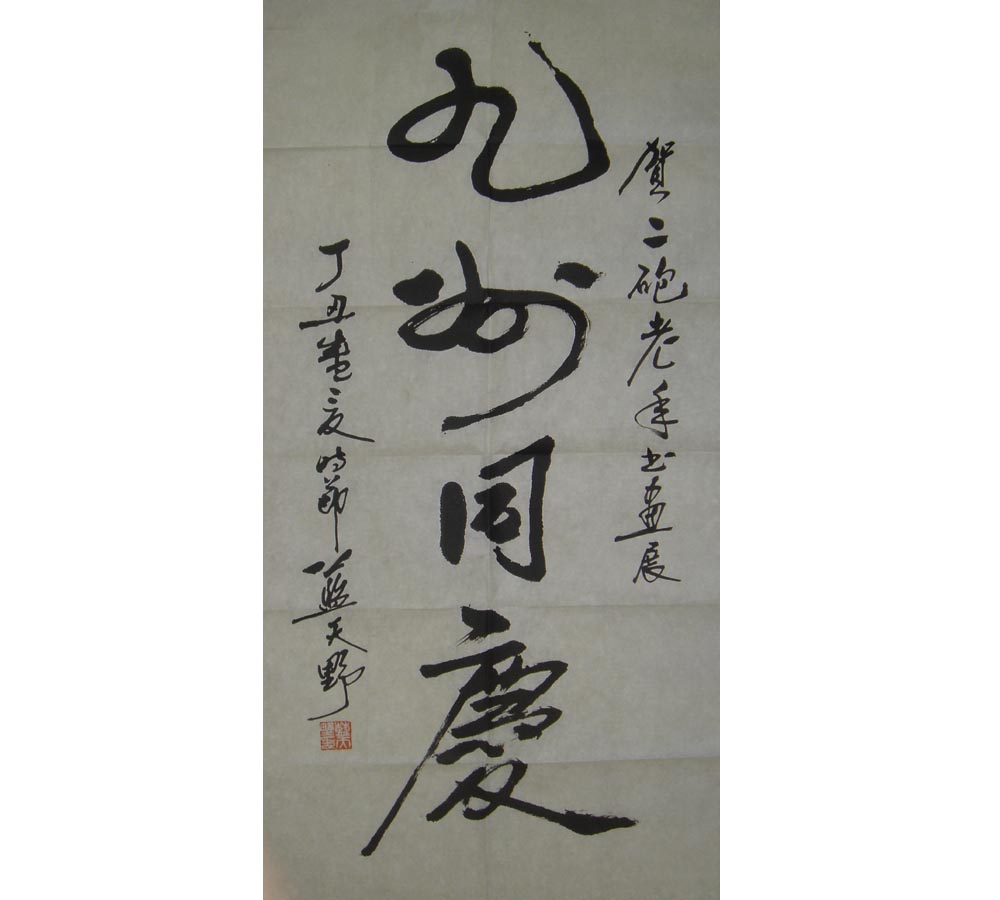 賀二砲老年书畫展
九州同慶
丁丑盛夏時節 藍天野